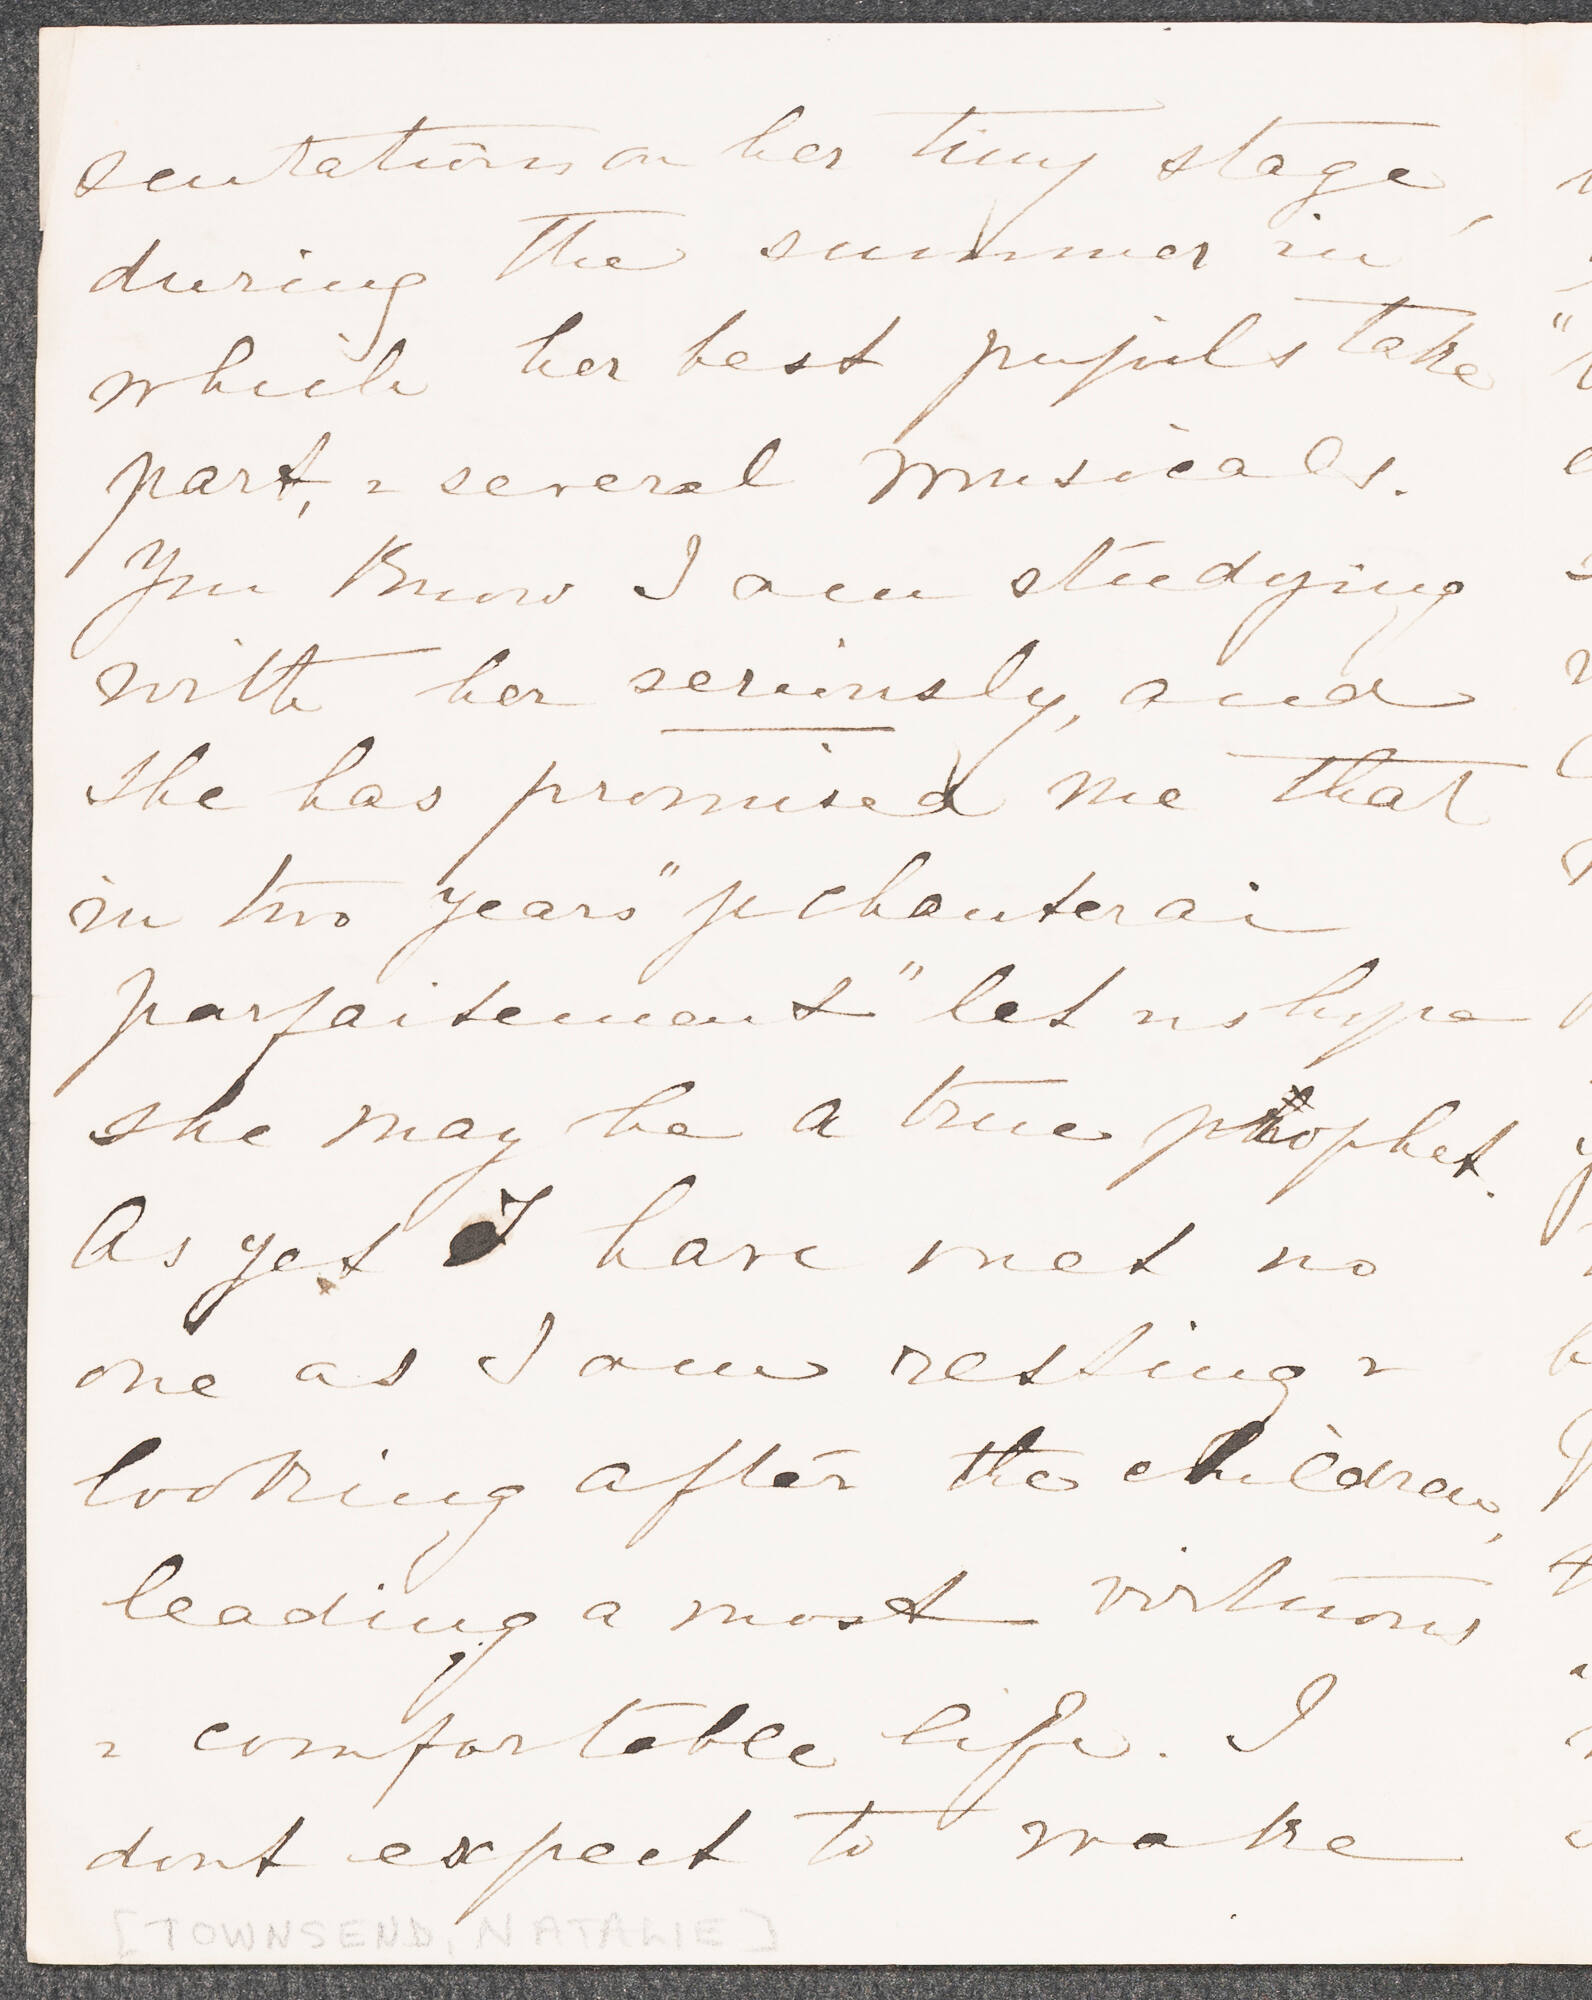 sentations on her tiny stage,
during the summer in
which her best pupils take
part, & several musicals.
You know I am studying
with her seriously, and
she has promised me that
in two years "je chanterai
parfaitement" let us hope
she may be a true prophet.
As yet I have met no
one as I am resting &
looking after the children,
leading a most virtuous
& comfortable life. I
dont expect to make
[TOWNSEND, NATALIE]